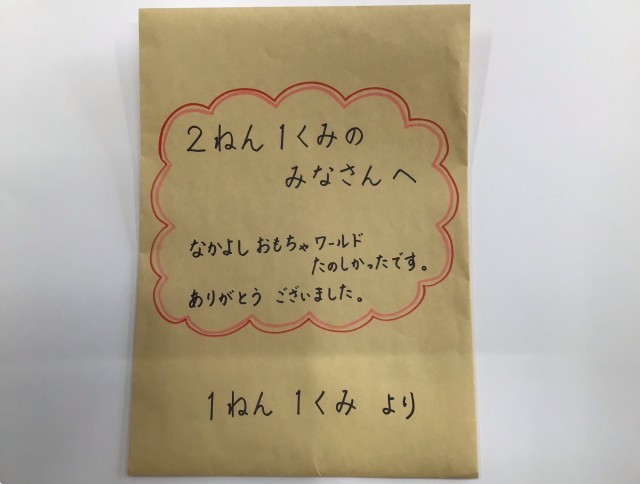 ２ねん１くみの
みなさんへ
なかよしおもちゃワールド
たのしかったです。
ありがとうございました。
１ねん１くみより